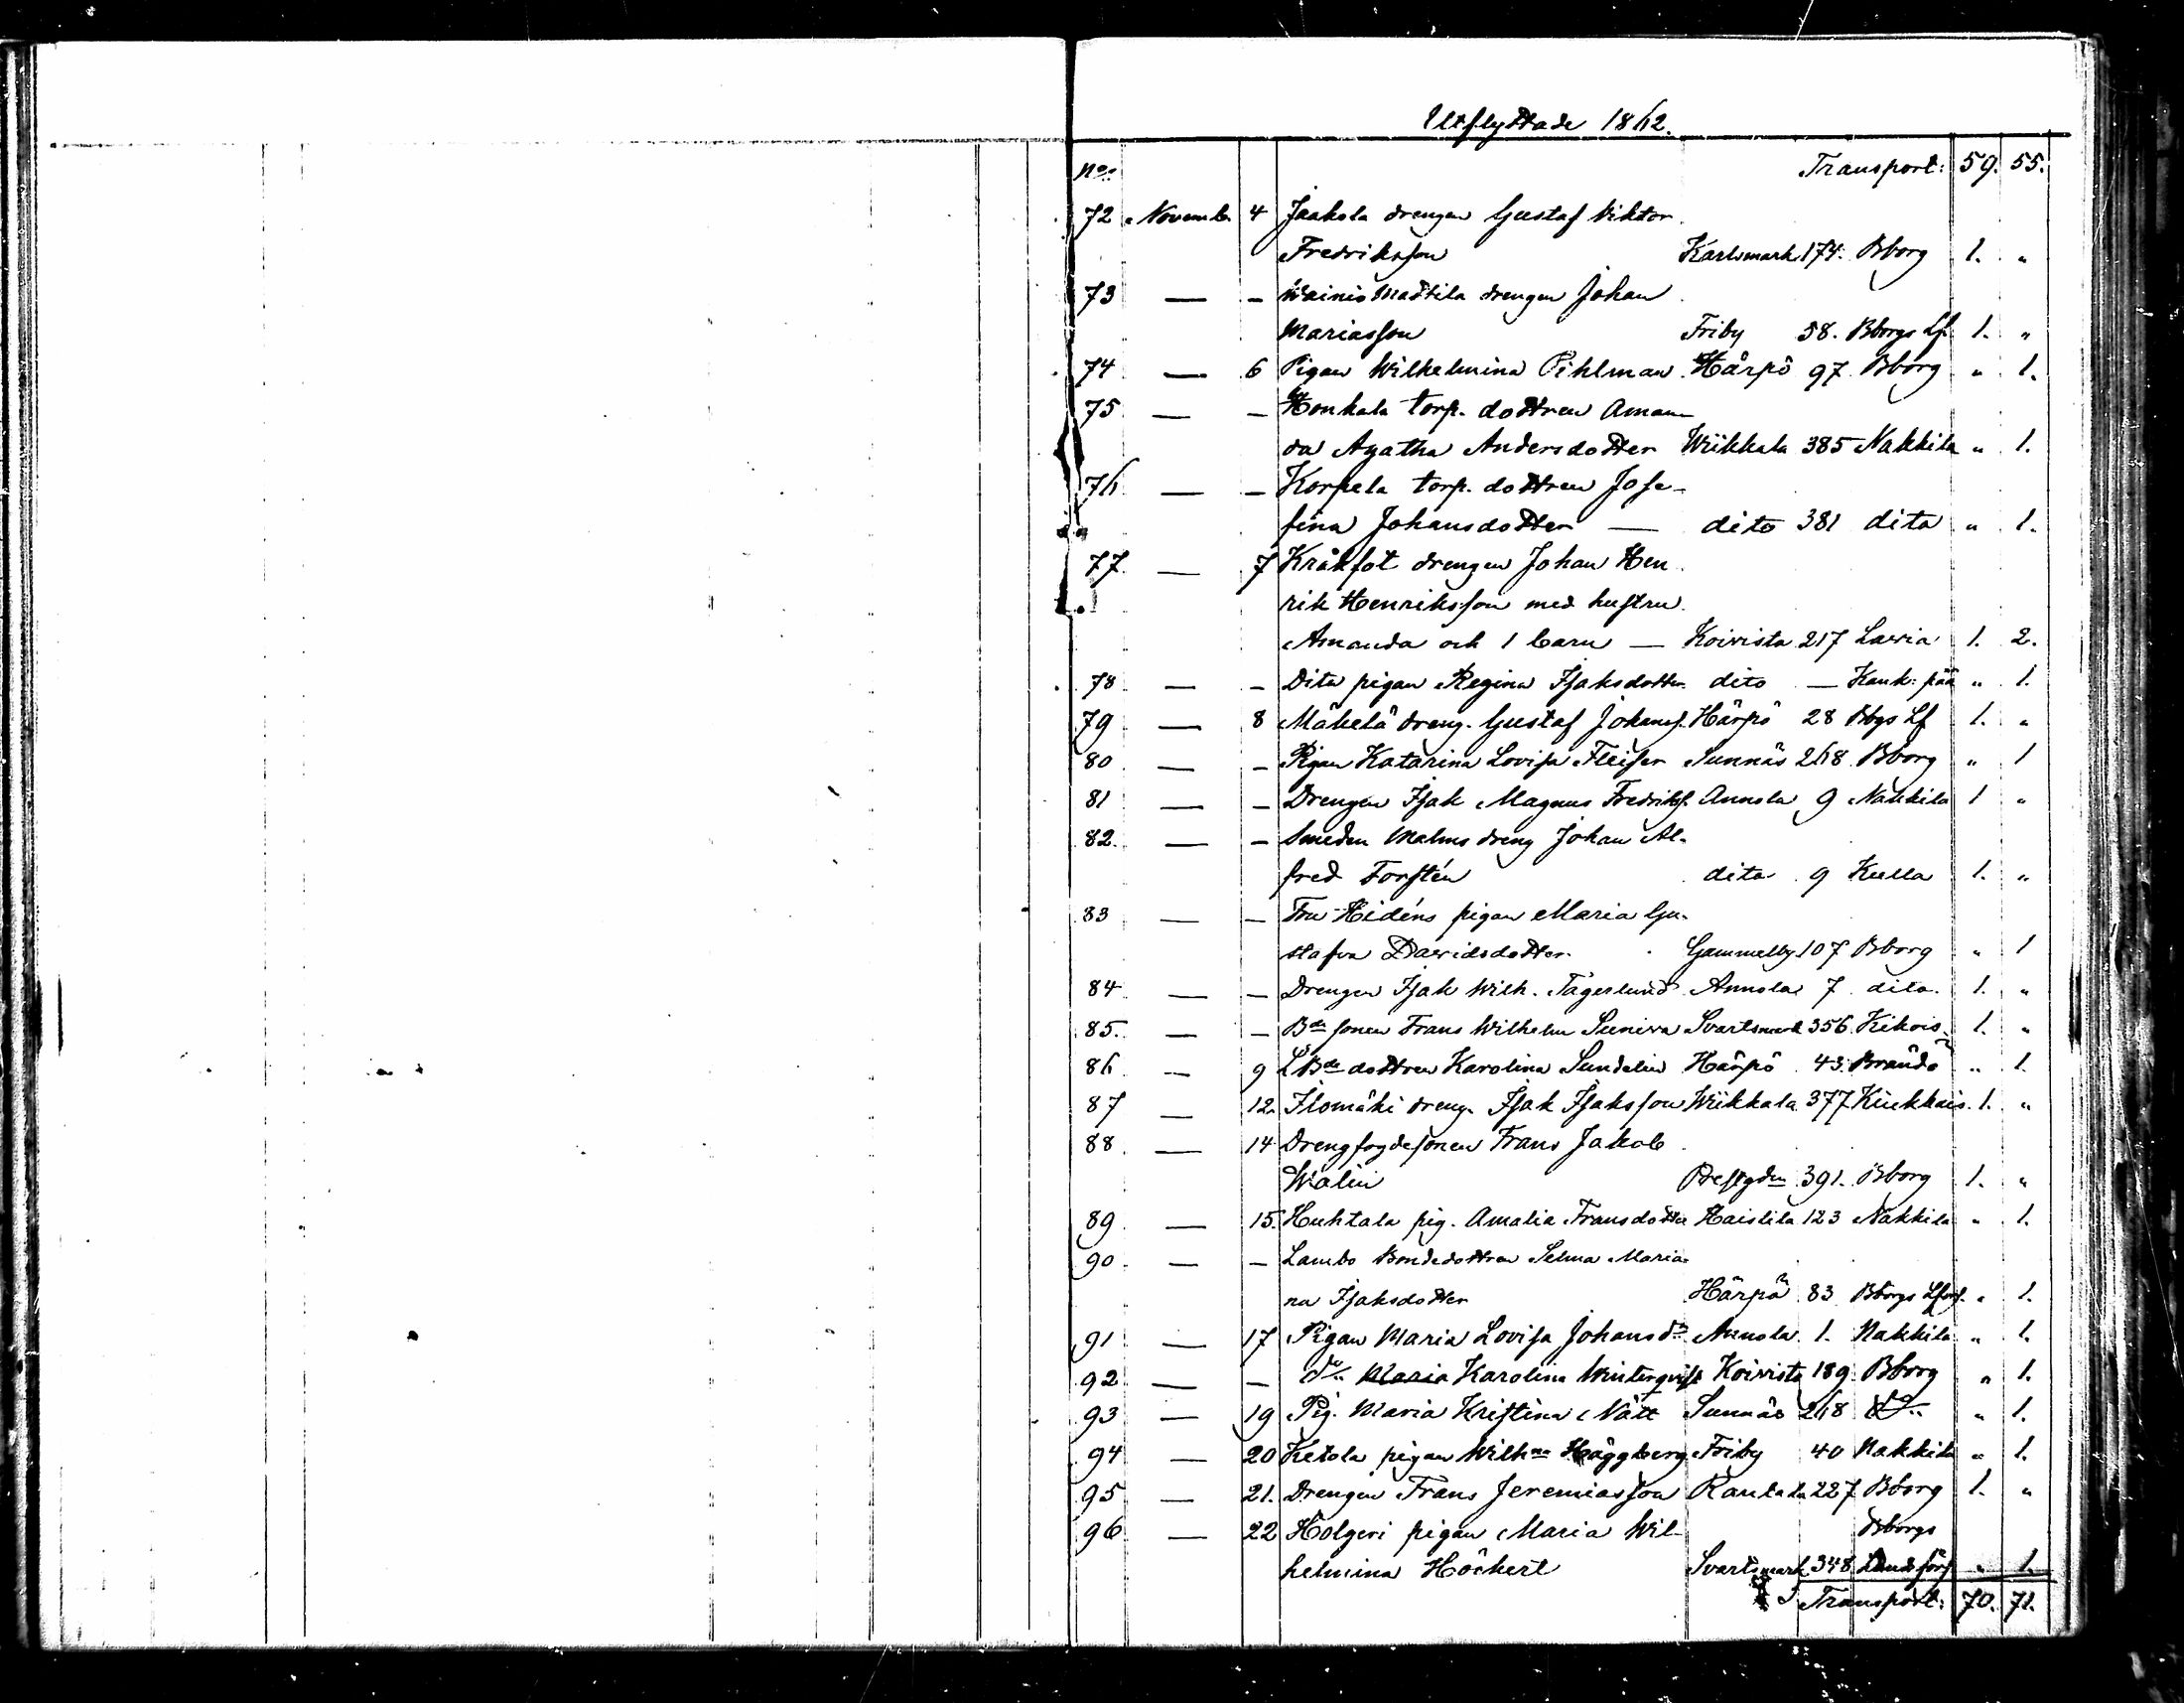 Utflyttade 1862.
No. Transport: 59. 55.
72 Novemb. 4 Jaakola drengen Gustaf Viktor
Fredriksson Karlsmark 174. Bborg 1. "
73 — — Wainio Mattila drengen Johan
Mariasson Friby 58. Bborgs Lf. 1. "
74 — 6 Pigan Wilhelmina Pihlman Härpö 97 Bborg " 1.
75 — — Honkala torp. dottren Aman-
da Agatha Andersdotter Wiikkala 385 Nakkila " 1.
76 — — Korpela torp. dottren Jose-
fina Johansdotter — dito 381 dito " 1.
77 — 7 Kråkfot drengen Johan Hen
rik Henriksson med hustru
Amanda och 1 barn — Koivisto 217 Lavia 1. 2.
78 — — Dito pigan Regina Isaksdotter dito — Kank:pää " 1.
79 — 8 Mäkelä dreng. Gustaf Johanss. Härpö 28 Bbgs Lf 1. "
80 — — Pigan Katarina Lovisa Fleiser Sunnäs 268 Bborg " 1
81 — — Drengen Isak Magnus Fredrikss. Annola 9 Nakkila 1 "
82. — — Smeden Malms dreng Johan Al-
fred Forstén dito 9 Kulla 1. "
83 — — Fru Hidéns pigan Maria Gu-
stafva Davidsdotter Gammelby 107 Bborg " 1
84 — — Drengen Isak Wilh. Tågerlund Annola 7 dito 1. "
85. — — Bde sonen Frans Wilhelm Suniva Svartsmark 356 Kikois 1. "
86 — 9 LBde dottren Karolina Sundelin Härpö 43. Brändö " 1.
87 — 12. Ilomäki dreng. Isak Isaksson Wiikkala 377 Kiukkais. 1. "
88 — 14 Drengfogdesonen Frans Jakob
Walin Prestgdn 391. Bborg 1. "
89 — 15. Huhtala pig. Amalia Fransdotter Haistila 123 Nakkila " 1.
90 — — Lambo Bondedottren Selma Maria-
na Isaksdotter Härpö 83 Bborgs Lförs. " 1.
91 — 17 Pigan Maria Lovisa Johansdr Annola 1. Nakkila " 1.
92 — — do Maria Karolina Winterqvist Koivisto 189 Bborg " 1.
93 — 19 Pig. Maria Kristina Nätt Sunnäs 268 do " 1.
94 — 20 Ketola pigan Wilhna Häggberg Friby 40 Nakkila " 1.
95 — 21. Drengen Frans Jeremiasson Rantala 227 Bborg 1. "
96 — 22 Holgeri pigan Maria Wil- Bborgs
helmina Höckert Svartsmark 348 Landsförs " 1.
Transport: 70. 71.